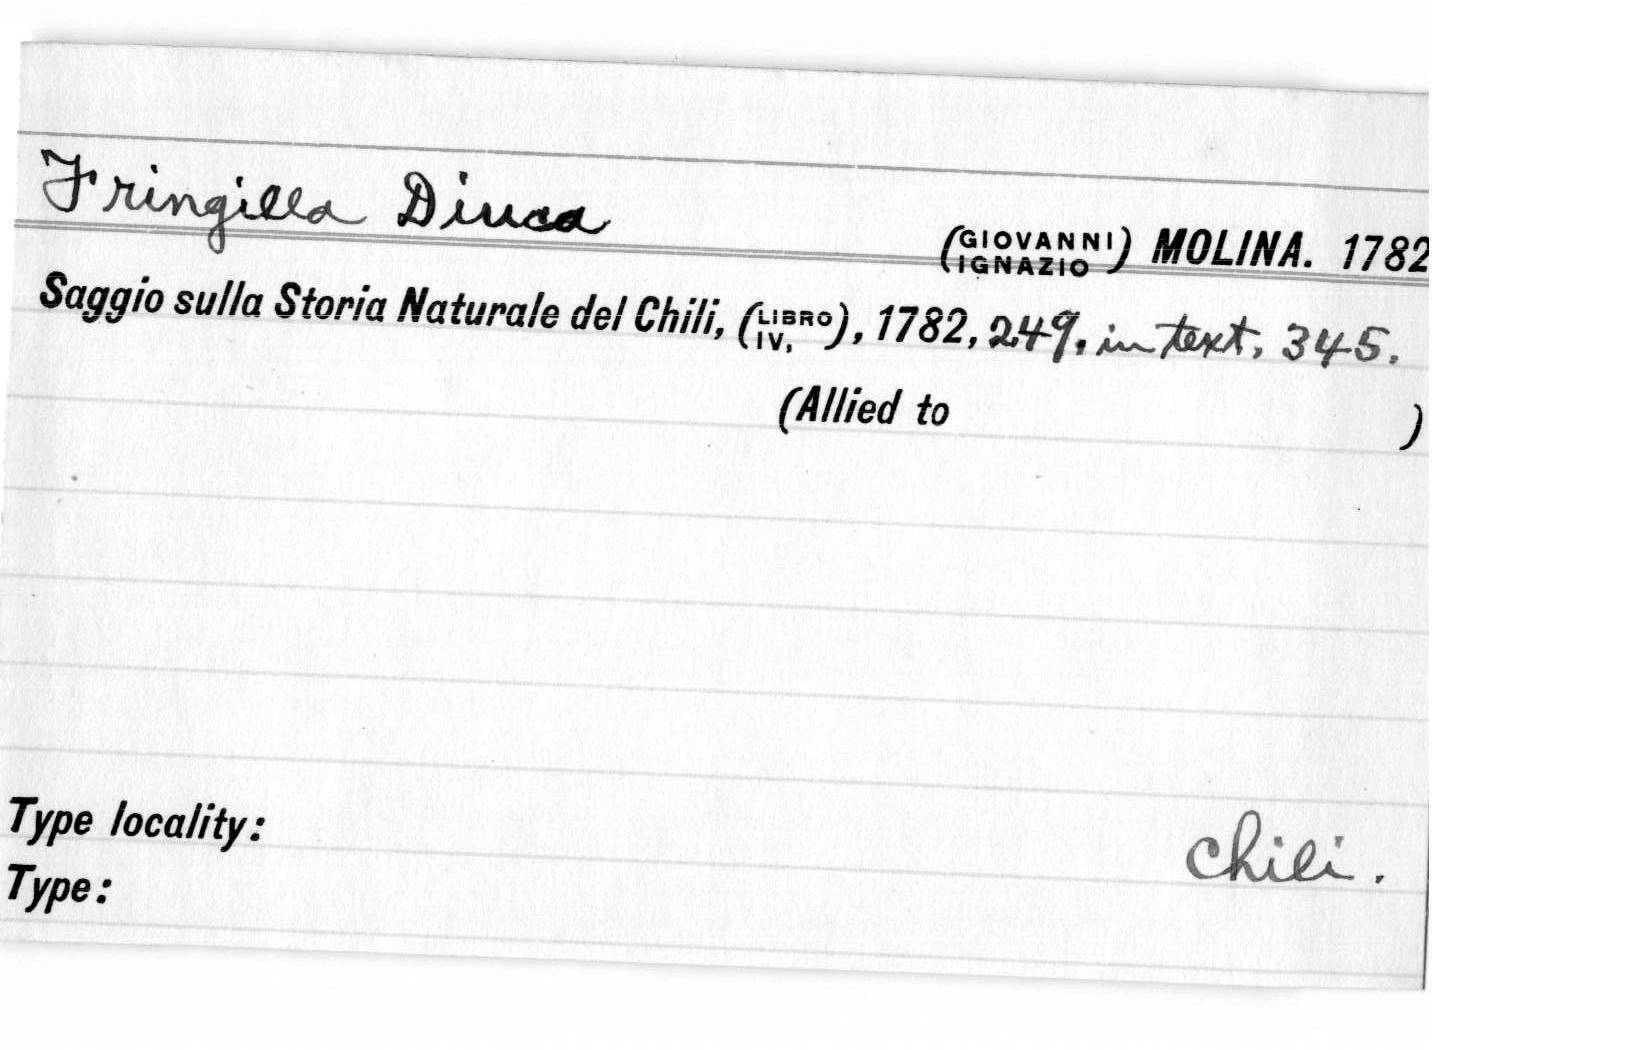 Fringilla Diuca
(GIOVANNI IGNAZIO) MOLINA. 1782
Saggio sulla Storia Naturale del Chili, (LIBRO IV,), 1782, 249, in text, 345.
(Allied to )
Type locality: Chili.
Type: